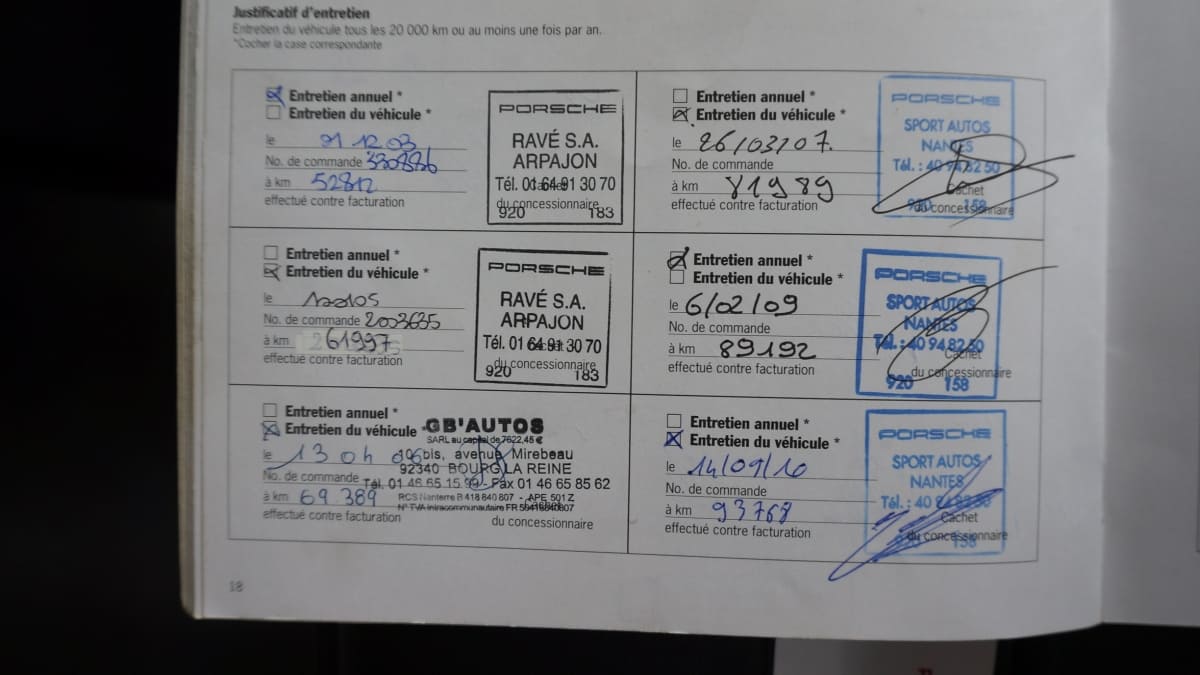 Justificatif d'entretien
Entretien du véhicule tous les 20 000 km ou au moins une fois par an.
*Cocher la case correspondante
Entretien annuel *
Entretien du véhicule *
le 12 03
No. de commande
à km 52812
effectué contre facturation
PORSCHE
RAVÉ S.A.
ARPAJON
Tél. 01 64 91 30 70
Cachet
du concessionnaire
920 183
Entretien annuel *
Entretien du véhicule *
le 26/03/07.
No. de commande
à km 81989
effectué contre facturation
PORSCHE
SPORT AUTOS
NANTES
Tél. : 40 94 82 50
Cachet
du concessionnaire
920 158
Entretien annuel *
Entretien du véhicule *
le
No. de commande 2003635
à km 61997
effectué contre facturation
PORSCHE
RAVÉ S.A.
ARPAJON
Tél. 01 64 91 30 70
du concessionnaire
920 183
Entretien annuel *
Entretien du véhicule *
le 6/02/09
No. de commande
à km 89192
effectué contre facturation
PORSCHE
SPORT AUTOS
NANTES
Tél. : 40 94 82 50
Cachet
du concessionnaire
920 158
Entretien annuel *
Entretien du véhicule *
le 13 04 06
No. de commande
à km 69 389
effectué contre facturation
GB'AUTOS
SARL au capital de 7622,45 €
106 bis, avenue Mirebeau
92340 BOURG LA REINE
Tél. 01 46 65 15 - Fax 01 46 65 85 62
RCS Nanterre B 418 840 807 - APE 501 Z
N° TVA intracommunautaire FR
du concessionnaire
Entretien annuel *
Entretien du véhicule *
le 14/09/10
No. de commande
à km 93768
effectué contre facturation
PORSCHE
SPORT AUTOS
NANTES
Tél. : 40
Cachet
du concessionnaire
158
18